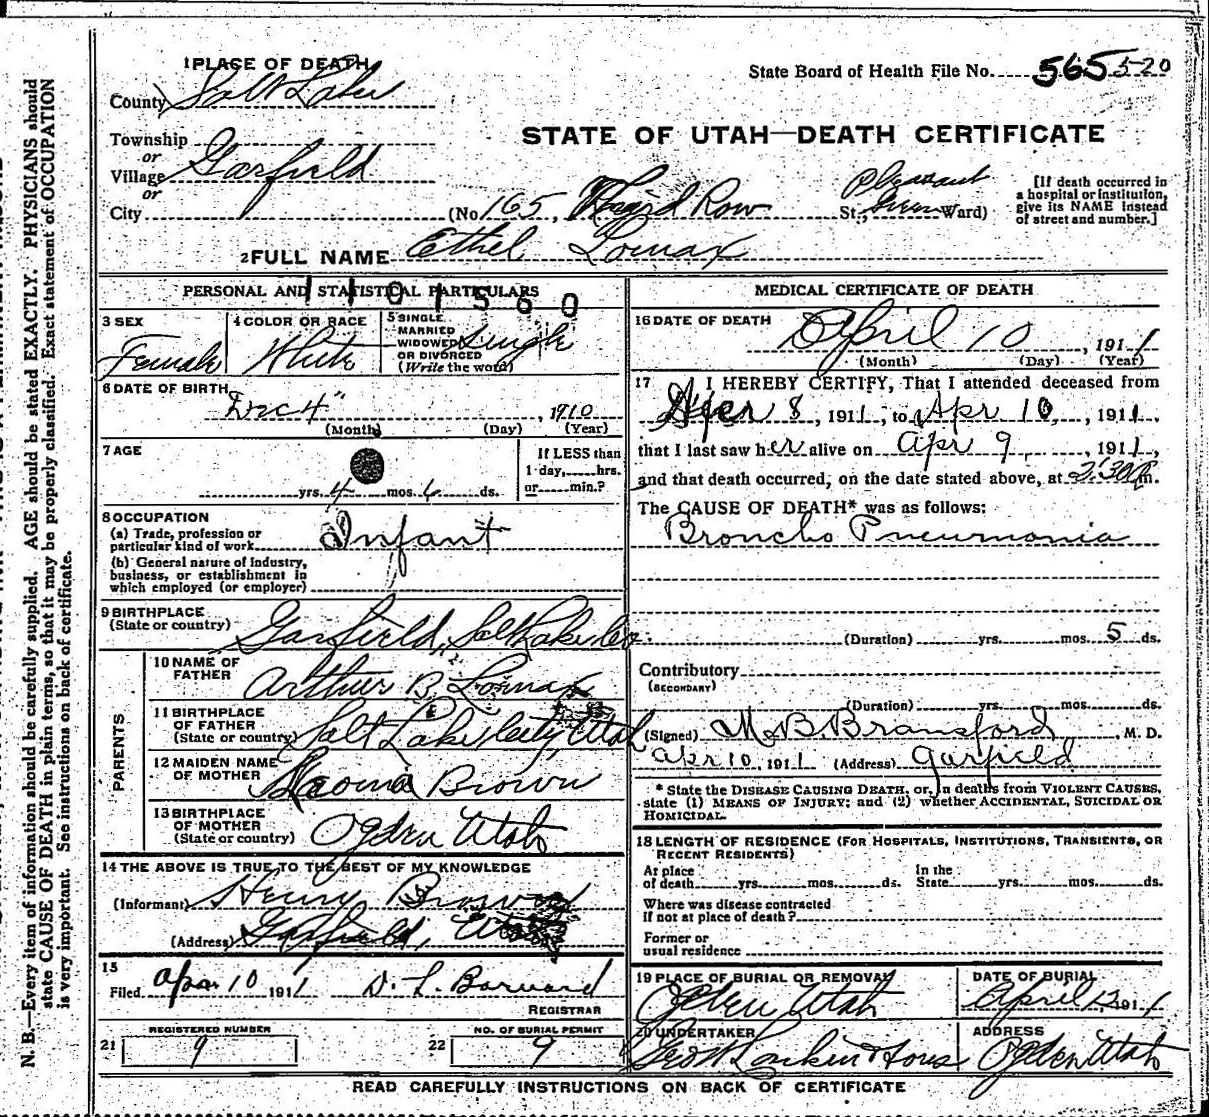 1 PLACE OF DEATH
County Salt Lake
State Board of Health File No. 565 520
STATE OF UTAH—DEATH CERTIFICATE
Township
or
Village Garfield
or
City (No 165, Third Row St.; Pleasant Green Ward)
[If death occurred in
a hospital or institution,
give its NAME instead
of street and number.]
2 FULL NAME Ethel Lomax
PERSONAL AND STATISTICAL PARTICULARS
1101560
3 SEX
Female
4 COLOR OR RACE
White
5 SINGLE
MARRIED
WIDOWED
OR DIVORCED
(Write the word)
Single
6 DATE OF BIRTH
Dec 4", 1910
(Month) (Day) (Year)
7 AGE
yrs. 4 mos. 6 ds.
If LESS than
1 day, hrs.
or min.?
8 OCCUPATION
(a) Trade, profession or
particular kind of work Infant
(b) General nature of industry,
business, or establishment in
which employed (or employer)
9 BIRTHPLACE
(State or country) Garfield, Salt Lake Co.
PARENTS
10 NAME OF
FATHER Arthur B. Lomax
11 BIRTHPLACE
OF FATHER
(State or country) Salt Lake City, Utah
12 MAIDEN NAME
OF MOTHER Naoma Brown
13 BIRTHPLACE
OF MOTHER
(State or country) Ogden Utah
14 THE ABOVE IS TRUE TO THE BEST OF MY KNOWLEDGE
(Informant) Henry Brown
(Address) Garfield, Utah
15
Filed Apr. 10 1911 D. L. Barnard
REGISTRAR
REGISTERED NUMBER
21 9
NO. OF BURIAL PERMIT
22 9
MEDICAL CERTIFICATE OF DEATH
16 DATE OF DEATH
April 10, 1911
(Month) (Day) (Year)
17 I HEREBY CERTIFY, That I attended deceased from
Apr 8, 1911, to Apr 10, 1911,
that I last saw her alive on Apr 9, 1911,
and that death occurred, on the date stated above, at 3:30 P m.
The CAUSE OF DEATH* was as follows:
Broncho Pneumonia
(Duration) yrs. mos. 5 ds.
Contributory
(SECONDARY)
(Duration) yrs. mos. ds.
(Signed) M. B. Bransford, M. D.
Apr 10, 1911 (Address) Garfield
* State the DISEASE CAUSING DEATH, or, in deaths from VIOLENT CAUSES,
state (1) MEANS OF INJURY; and (2) whether ACCIDENTAL, SUICIDAL OR
HOMICIDAL.
18 LENGTH OF RESIDENCE (FOR HOSPITALS, INSTITUTIONS, TRANSIENTS, OR
RECENT RESIDENTS)
At place
of death yrs. mos. ds.
In the
State yrs. mos. ds.
Where was disease contracted
if not at place of death?
Former or
usual residence
19 PLACE OF BURIAL OR REMOVAL
Ogden Utah
DATE OF BURIAL
April 12 1911
20 UNDERTAKER
Larkin & Sons
ADDRESS
Ogden Utah
READ CAREFULLY INSTRUCTIONS ON BACK OF CERTIFICATE
N. B.—Every item of information should be carefully supplied. AGE should be stated EXACTLY. PHYSICIANS should
state CAUSE OF DEATH in plain terms, so that it may be properly classified. Exact statement of OCCUPATION
is very important. See instructions on back of certificate.